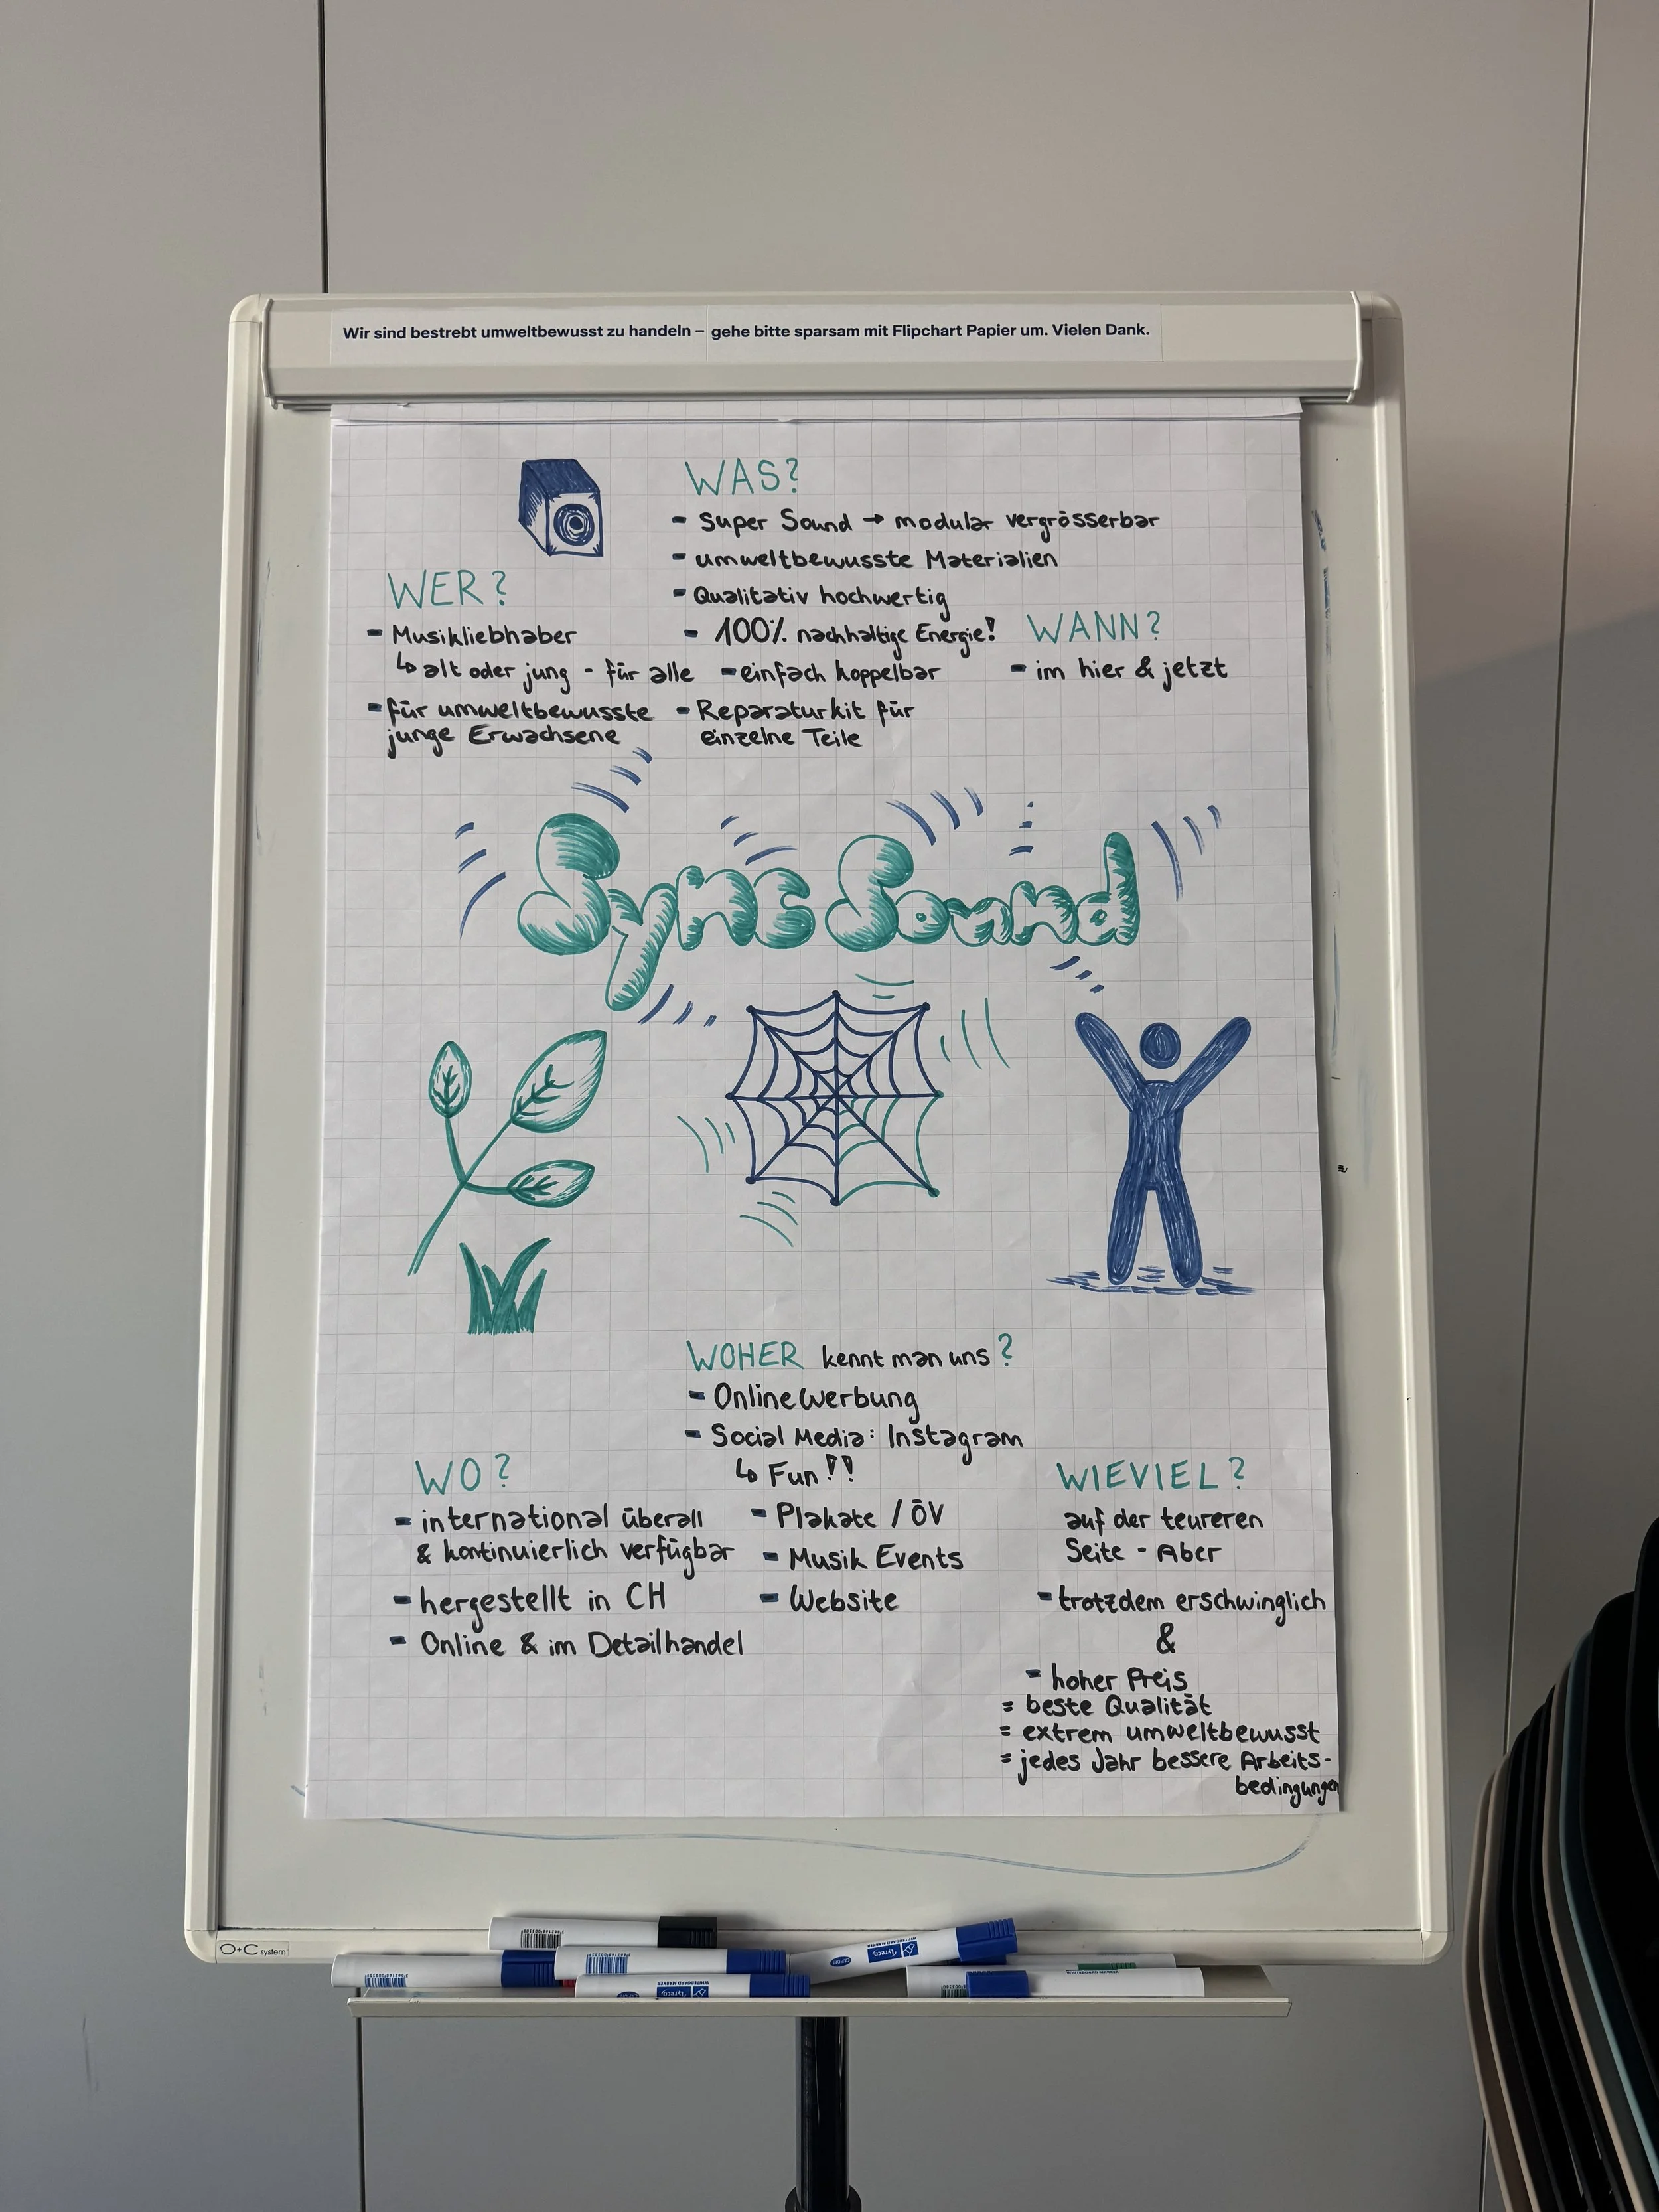 Wir sind bestrebt umweltbewusst zu handeln – gehe bitte sparsam mit Flipchart Papier um. Vielen Dank.
WAS?
- Super Sound → modular vergrösserbar
- umweltbewusste Materialien
- Qualitativ hochwertig
- 100% nachhaltige Energie!
- einfach koppelbar
- Reparaturkit für
einzelne Teile
WER?
- Musikliebhaber
↳ alt oder jung - für alle
- für umweltbewusste
junge Erwachsene
WANN?
- im hier & jetzt
Sync Sound
WOHER kennt man uns?
- Online Werbung
- Social Media: Instagram
↳ Fun!!
- Plakate / ÖV
- Musik Events
- Website
WO?
- international überall
& kontinuierlich verfügbar
- hergestellt in CH
- Online & im Detailhandel
WIEVIEL?
auf der teureren
Seite - Aber
- trotzdem erschwinglich
&
- hoher Preis
= beste Qualität
= extrem umweltbewusst
= jedes Jahr bessere Arbeits-
bedingungen
O+C system
lyreco
WHITEBOARD MARKER
lyreco
WHITEBOARD MARKER